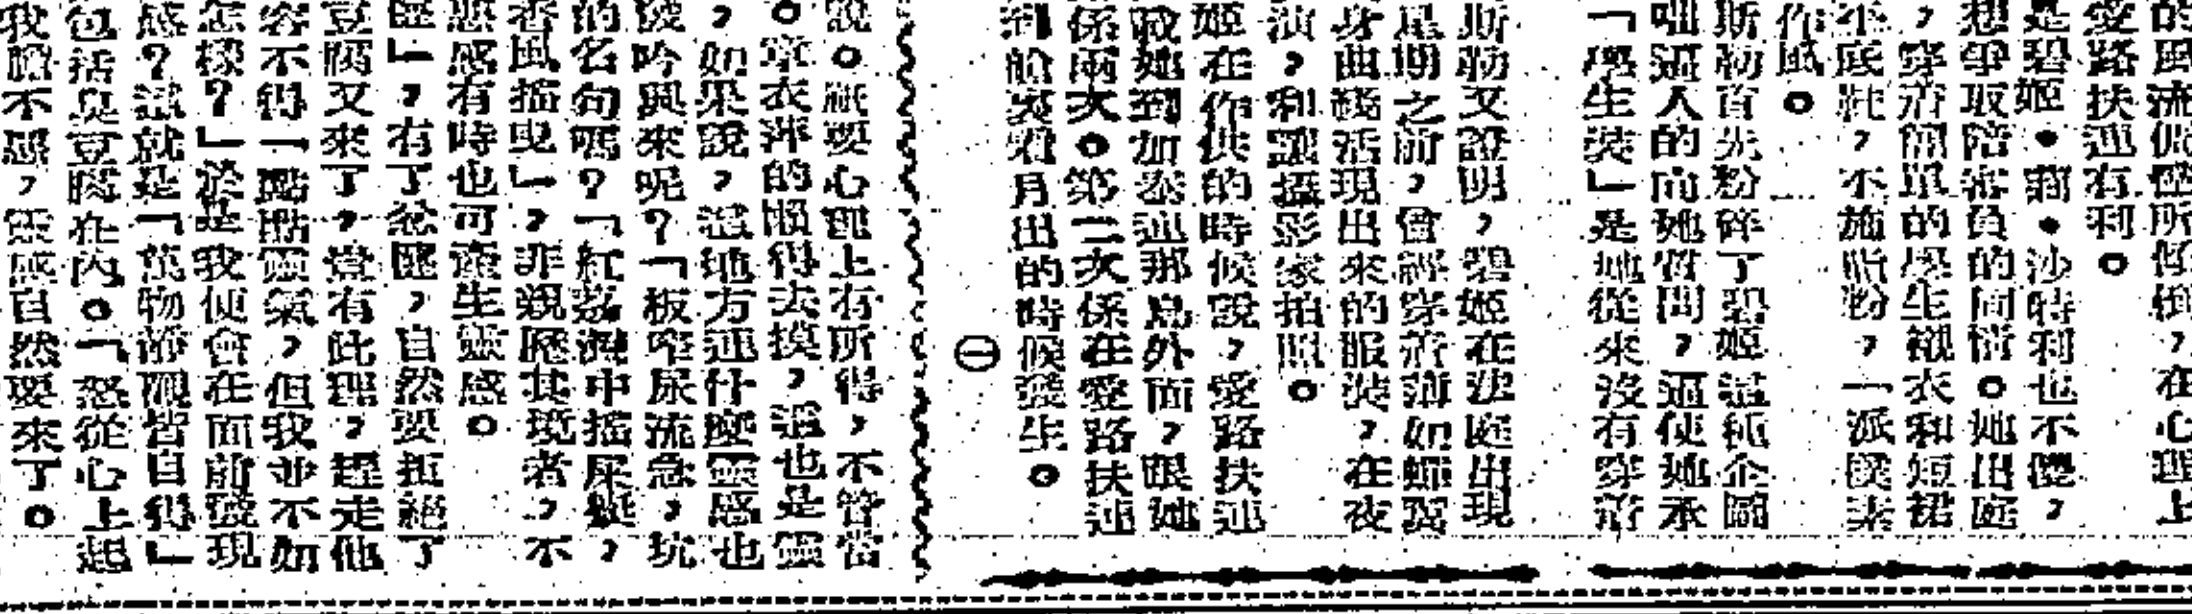 的風流倜儻所傾倒,在心理上
愛路扶連有利。
是碧姬•蕭•沙特利也不傻,
想爭取陪審員的同情。她出庭
,穿着簡單的學生襯衣和短裙
平底鞋,不施脂粉,一派樸素
作風。
斯勒首先粉碎了碧姬這種企圖
咄逼人的向她質問,逼使她承
「學生裝」是她從來沒有穿着
斯勒又證明,碧姬在法庭出現
星期之前,曾經穿着薄如蟬翼
身曲綫活現出來的服裝,在夜
演,和讓攝影家拍照。
姬在作供的時候說,愛路扶連
載她到加泰連那島外面,跟她
係兩次。第二次係在愛路扶連
到艙裏看月出的時候發生。
㊀
說。祇要心理上有所得,不管當
。章衣萍的懶得去摸,這也是靈
,如果說,這地方連什麼靈感也
發吟興來呢?「板窄尿流急,坑
的名句嗎?「紅荔灣中搖屎艇,
香風搖曳」,非親歷其境者,不
惡感有時也可產生靈感。
匿」,有了忿匿,自然要拒絕了
豆腐又來了,豈有此理,趕走他
容不得一點點靈氣,但我並不如
怎樣?」於是我便會在面前發現
感?這就是「萬物靜觀皆自得」
包括臭豆腐在內。「怒從心上起
我膽不惡,靈感自然要來了。